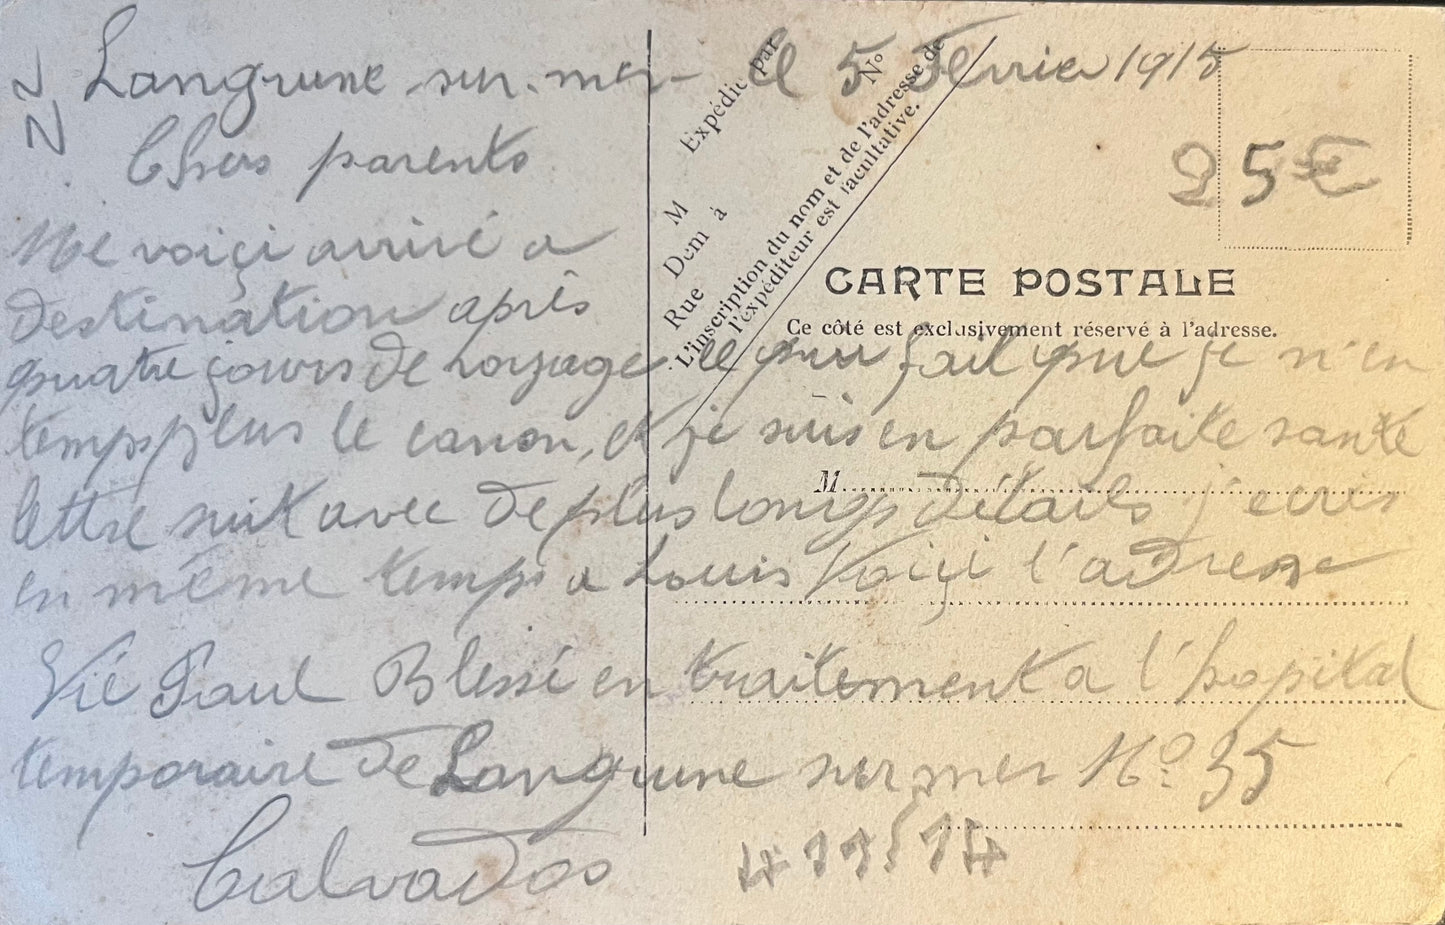 Langrune sur. mer- le 5 Fevrier 1915
25€
Chers parents
Me voiçi arrivé a
destination après
quatre jours de voyage ce qui fait que je n'en
temps plus le canon, et je suis en parfaite santé
lettre suit avec de plus longs détails j'ecris
en même temps a Louis Voiçi l'adresse
Vié Paul Blessé en traitement a l'hopital
temporaire de Langrune sur mer No. 35
Calvados
Expédié par
M
Nº
Dem à
Rue
L'inscription du nom et de l'adresse de
l'expéditeur est facultative.
CARTE POSTALE
Ce côté est exclusivement réservé à l'adresse.
M